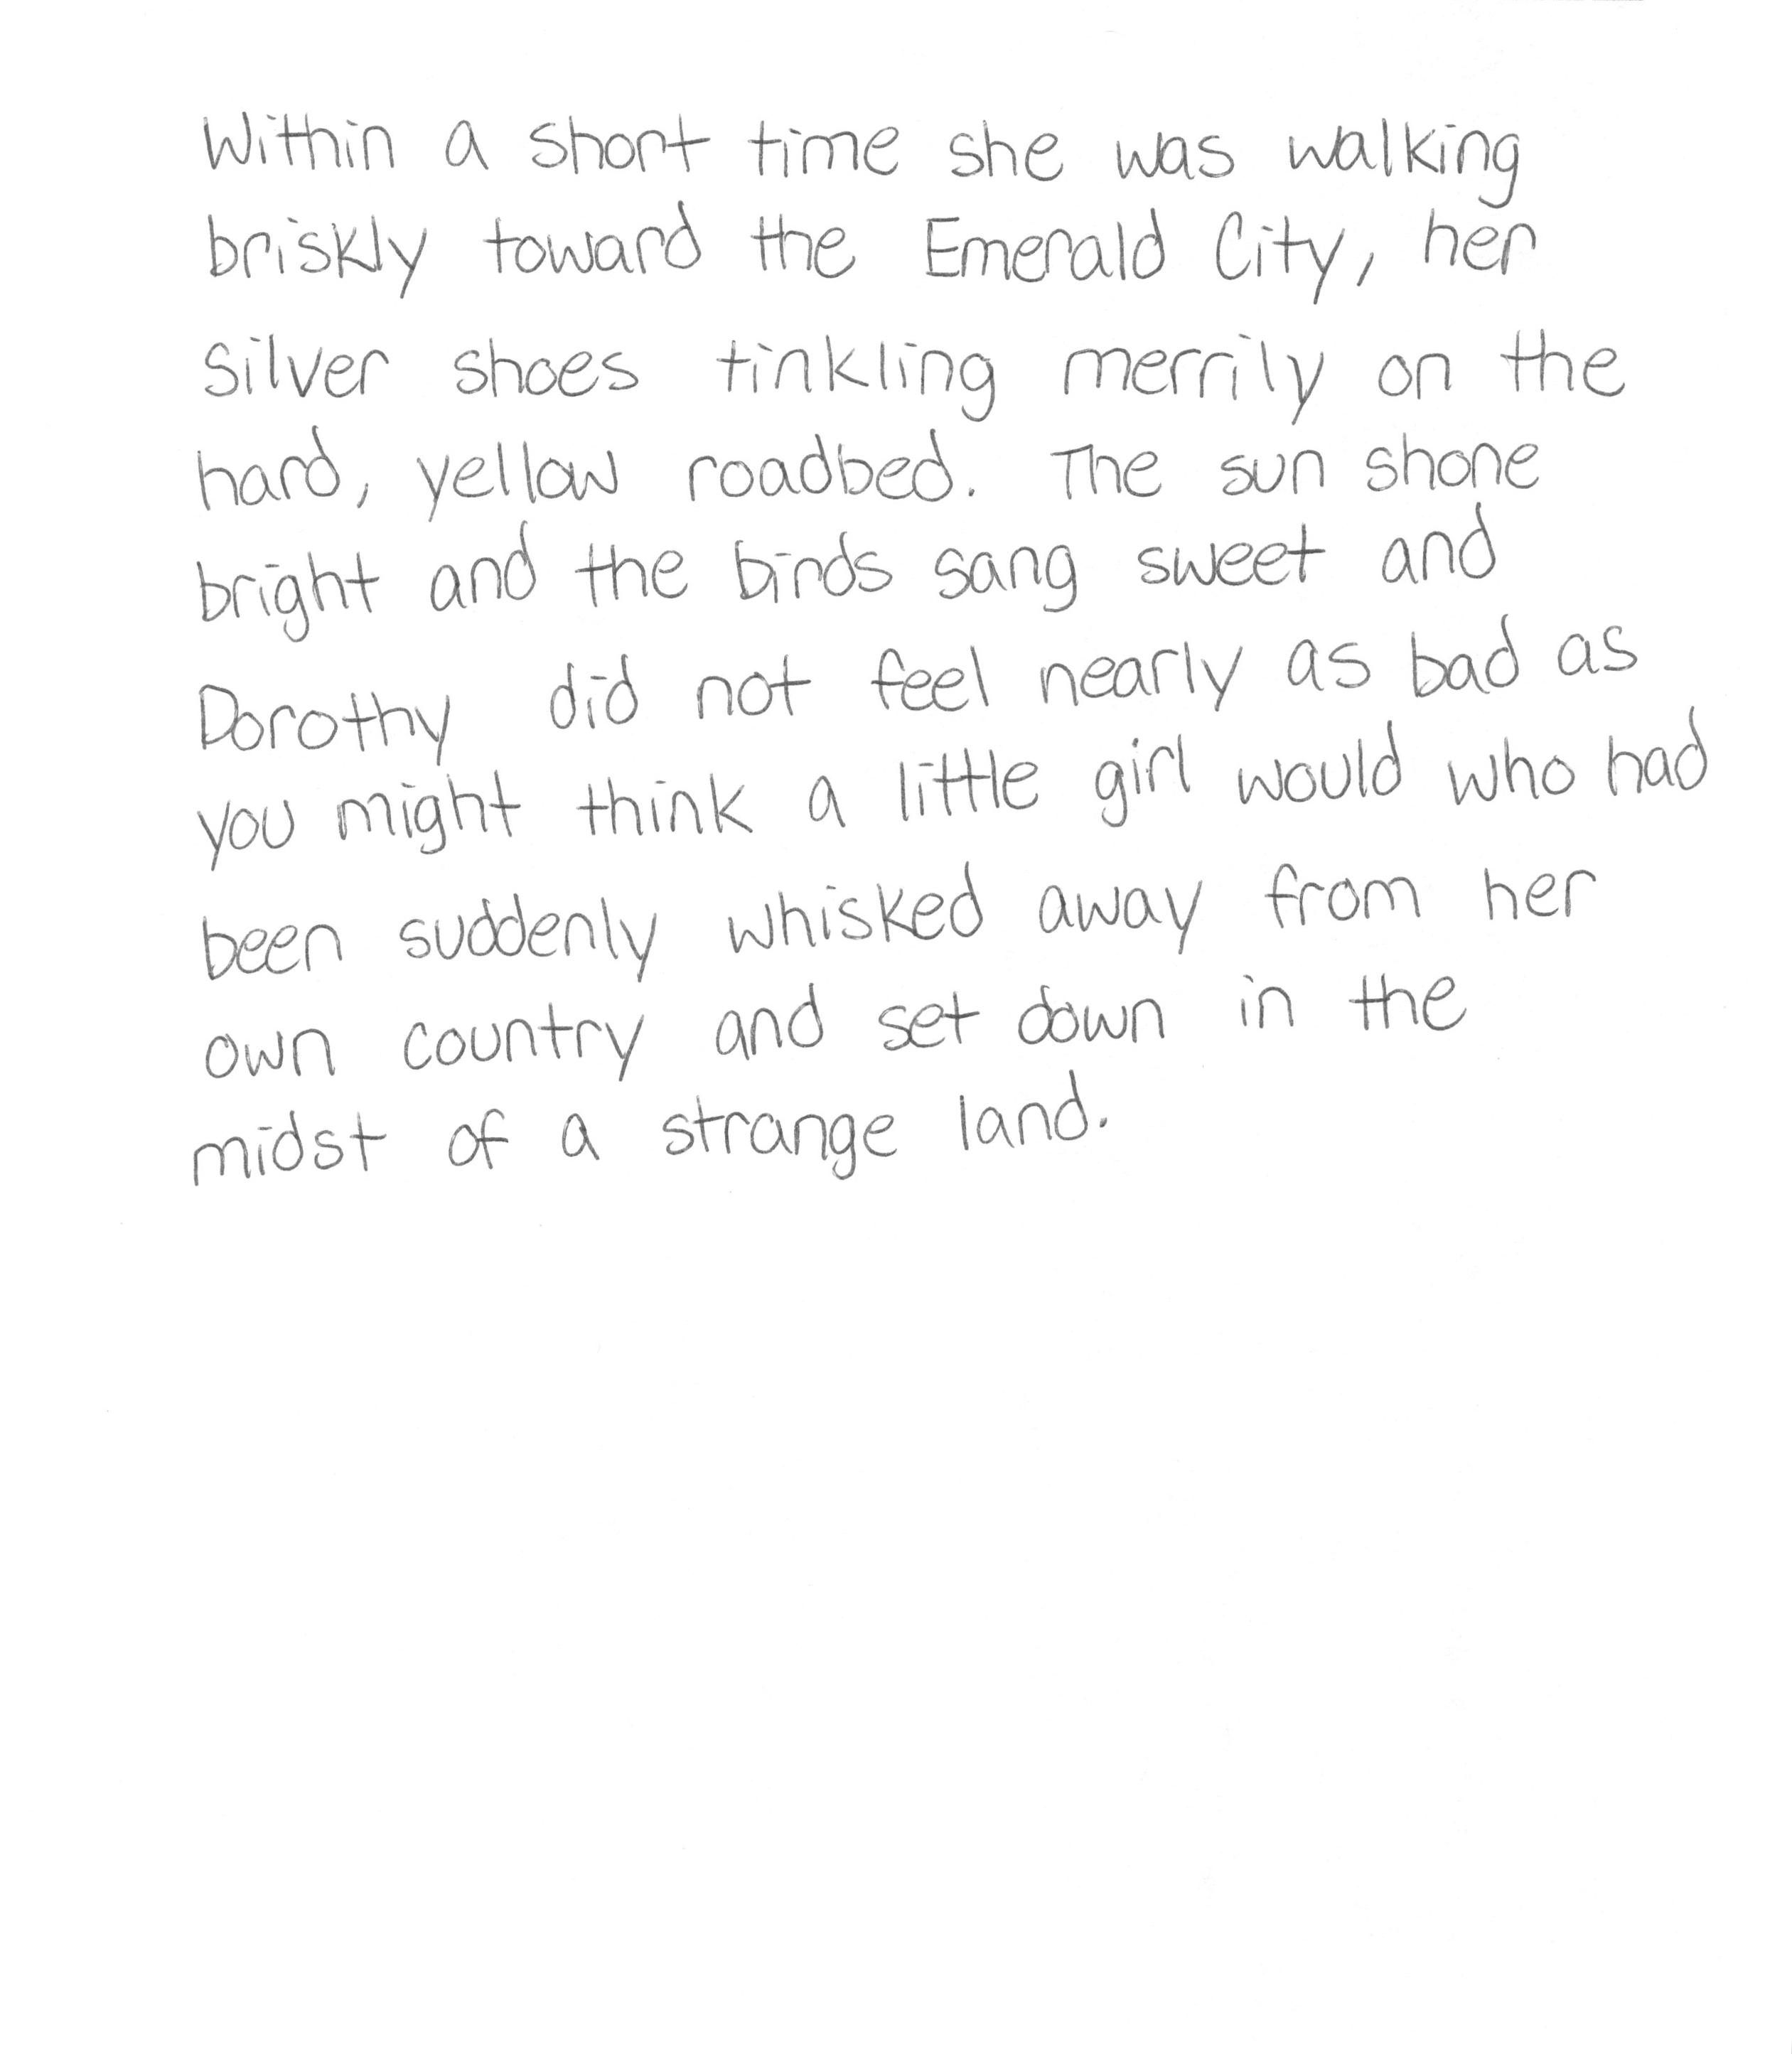 Within a short time she was walking
briskly toward the Emerald City, her
silver shoes tinkling merrily on the
hard, yellow roadbed. The sun shone
bright and the birds sang sweet and
Dorothy did not feel nearly as bad as
you might think a little girl would who had
been suddenly whisked away from her
own country and set down in the
midst of a strange land.